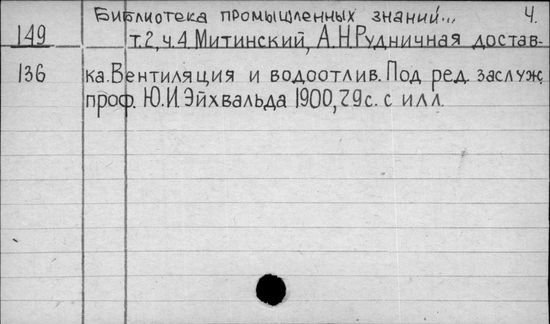 Библиотека промышленных знаний... 4.
149 т.2, ч.4. Митинский, А.Н. Рудничная достав-
136 ка. Вентиляция и водоотлив. Под ред. заслуж.
проф. Ю.И. Эйхвальда 1900, 79с. с илл.